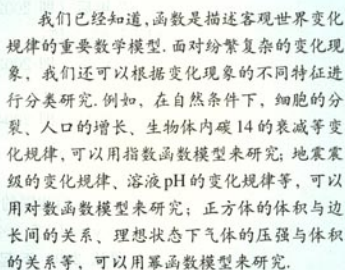 我们已经知道,函数是描述客观世界变化
规律的重要数学模型.面对纷繁复杂的变化现
象，我们还可以根据变化现象的不同特征进
行分类研究.例如，在自然条件下，细胞的分
裂、人口的增长、生物体内碳14的衰减等变
化规律,可以用指数函数模型来研究；地震震
级的变化规律、溶液pH的变化规律等，可以
用对数函数模型来研究；正方体的体积与边
长间的关系、理想状态下气体的压强与体积
的关系等，可以用幂函数模型来研究.